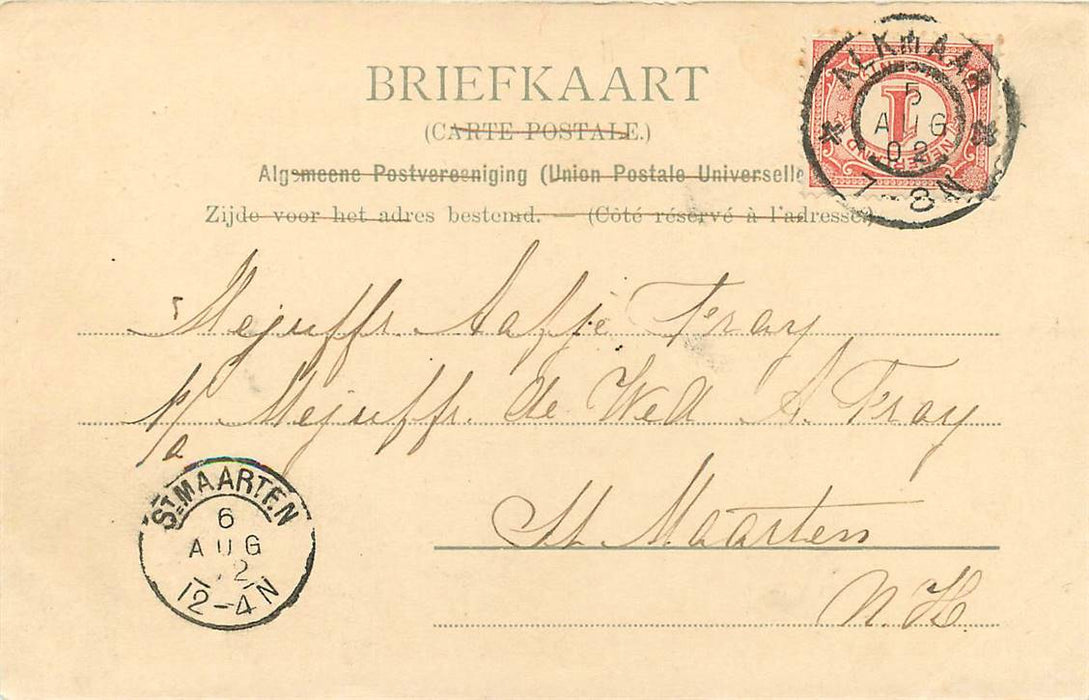 BRIEFKAART
(CARTE POSTALE.)
Algemeene Postvereeniging (Union Postale Universelle
Zijde voor het adres bestemd. — (Côté réservé à l'adresse)
ALKMAAR
5
AUG
02
7-8N
1
NEDERLAND
Mejuffr. Aafje Fray
p/a Mejuffr. de Wed A. Fray
St. Maarten
N.H.
ST. MAARTEN
6
AUG
02
12-4N